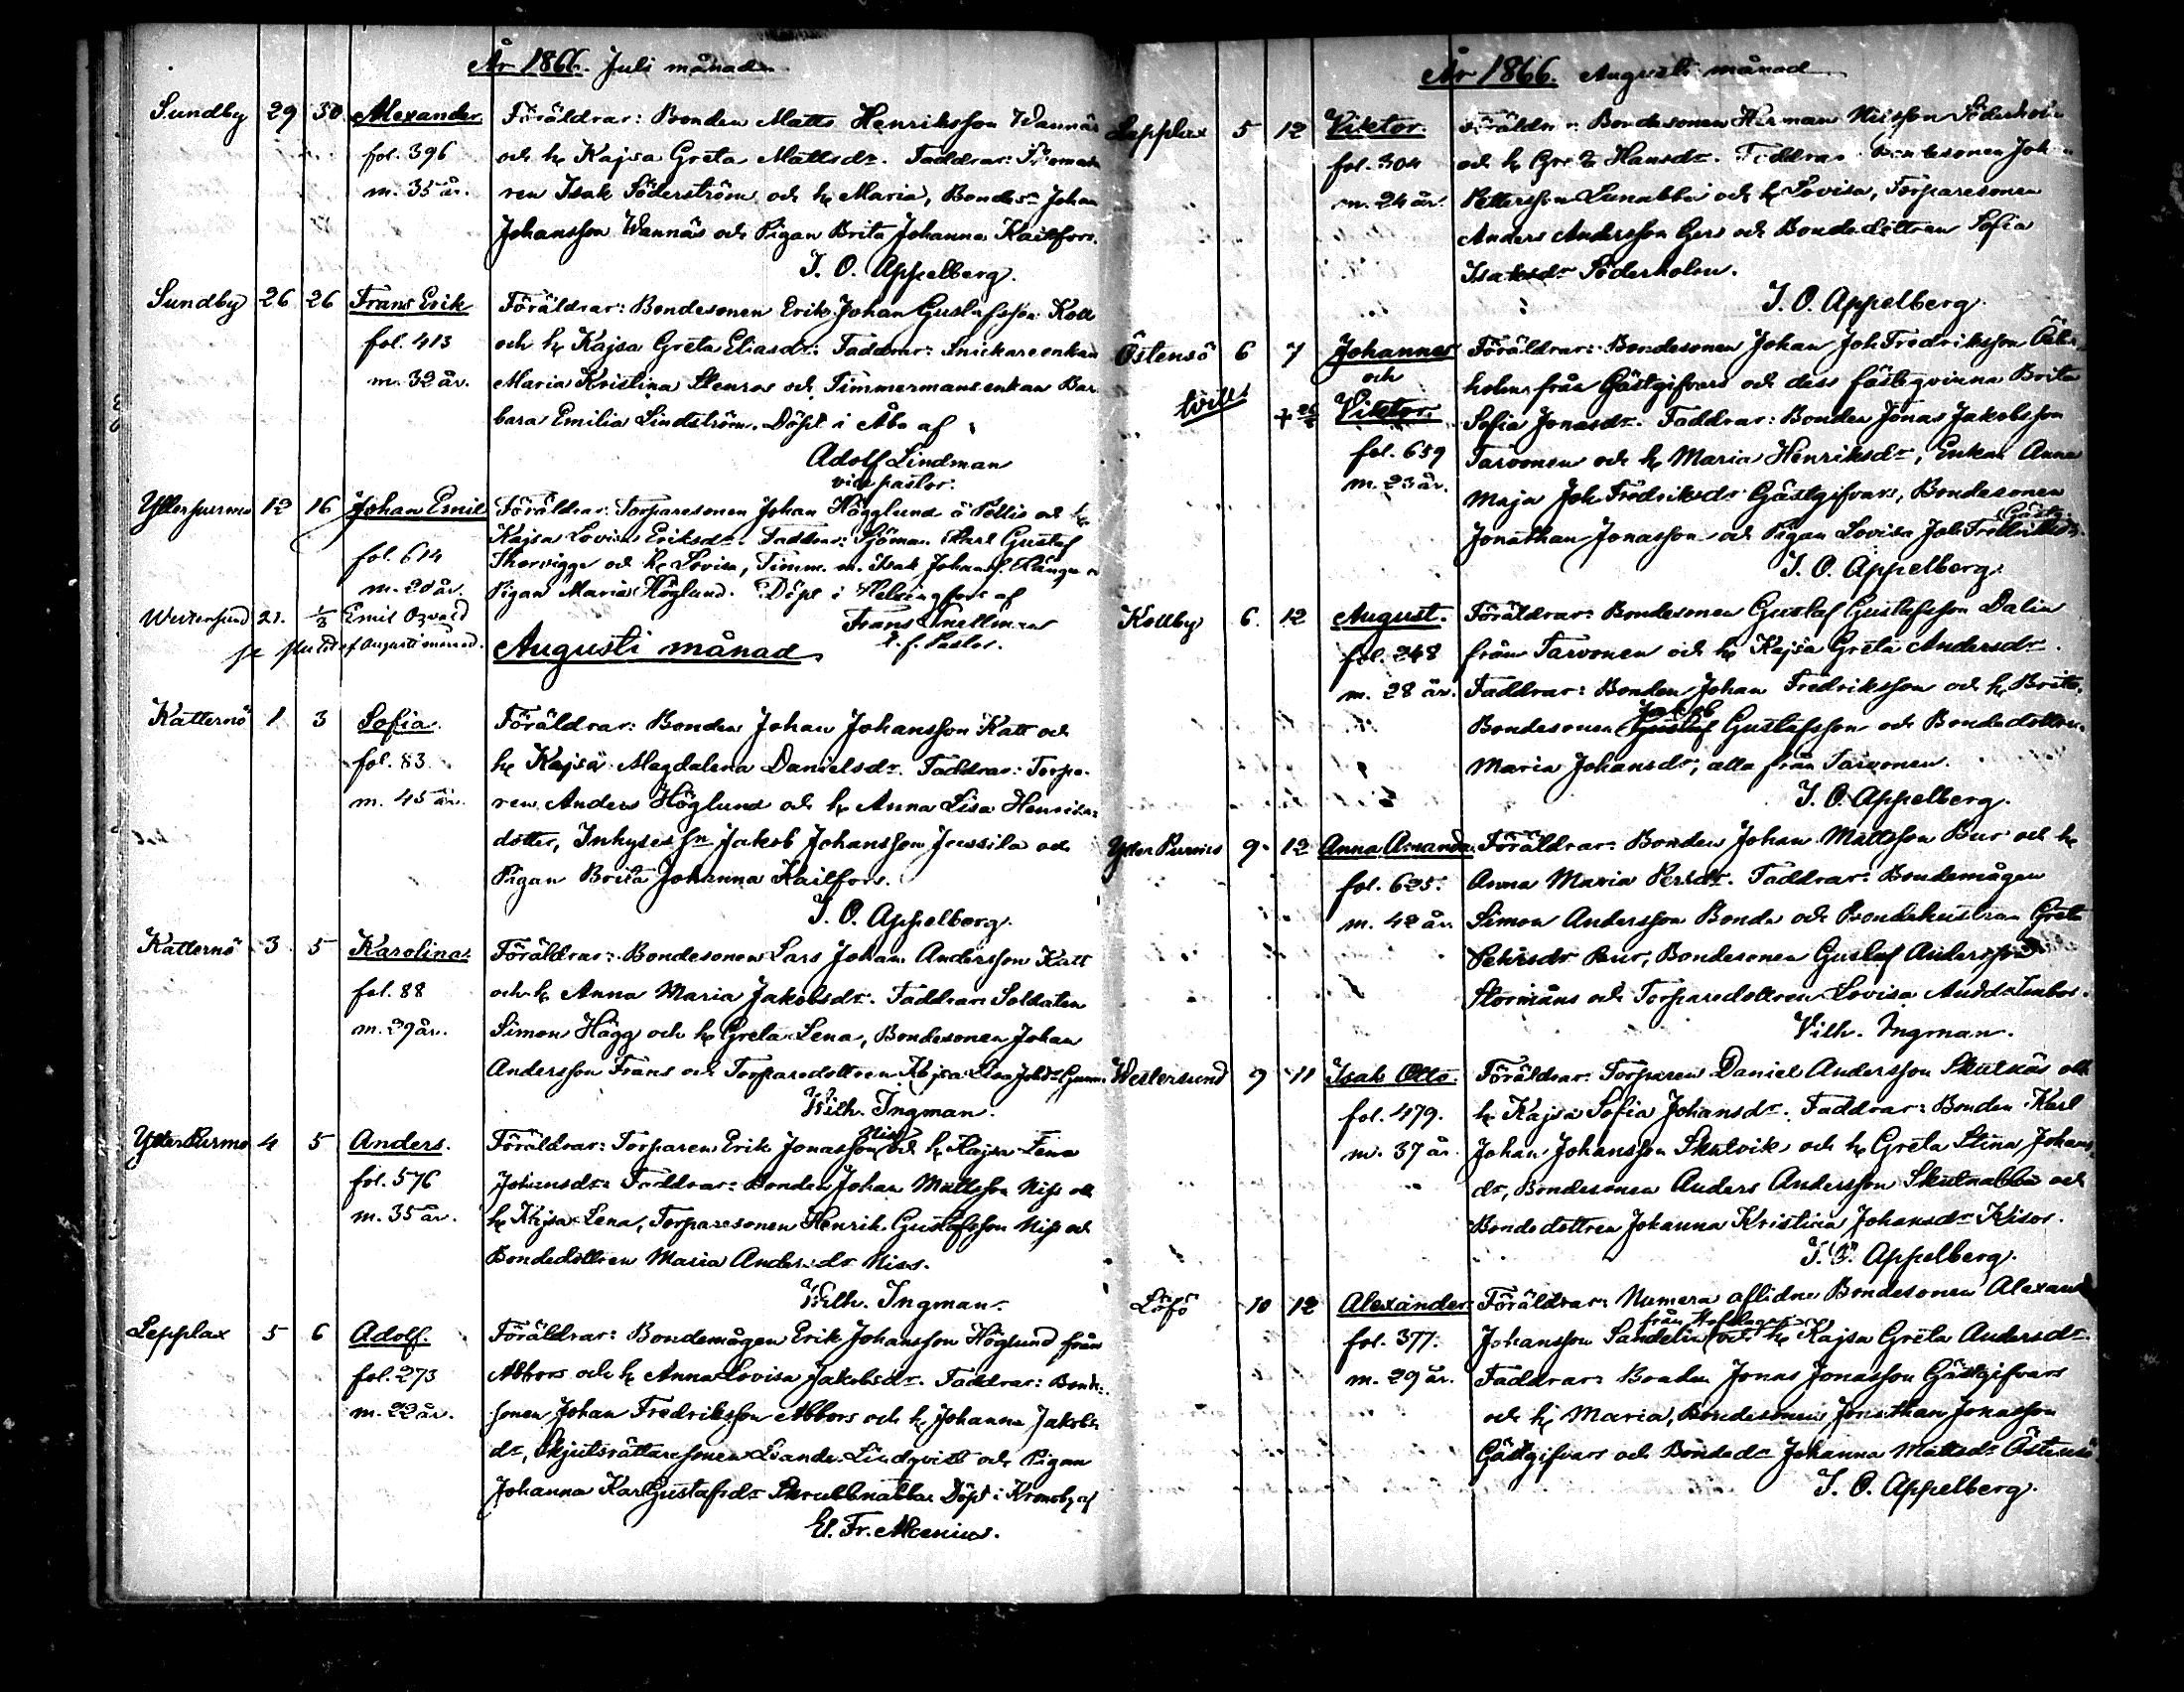 År 1866. Juli månad
Sundby 29 30 Alexander Föräldrar: Bonden Matts Henriksson Wannäs
fol. 396 och h. Kajsa Greta Mattsdr. Faddrar:
m. 35 år. ren Isak Söderström och h. Maria, Bondesn Johan
Johansson Wannäs och Pigan Brita Johanna Kailfors.
J. O. Appelberg.
Sundby 26 26 Frans Erik Föräldrar: Bondesonen Erik Johan Gustafsson Koll
fol. 413 och h. Kajsa Greta Eliasdr. Faddrar: Snickareenkan
m. 32 år. Maria Kristina Stenros och Timmermansenkan Bar
bara Emilia Lindström. Döpt i Åbo af
Adolf Lindman
vice pastor.
Ytterpurmo 12 16 Johan Emil Föräldrar: Torparesonen Johan Högglund å Pellis och h.
Kajsa Lovisa Eriksdr. Faddrar: Sjöman Karl Gustaf
fol. 614 Thorvigge och h. Lovisa, Timm. m. Isak Johans.
m. 20 år. Pigan Maria Höglund. Döpt i Helsingfors af
Westersund 21. 1/8 Emil Osvald Frans Snellman
se slutet af Augusti månad. v. f. Pastor.
Augusti månad
Katternö 1 3 Sofia. Föräldrar: Bonden Johan Johansson Katt och
fol. 83. h. Kajsa Magdalena Danielsdr. Faddrar: Torpa-
m. 45 år. ren Anders Höglund och h. Anna Lisa Henriks-
dotter, Inhyses sn Jakob Johansson Jussila och
Pigan Brita Johanna Kailfors.
J. O. Appelberg.
Katternö 3 5 Karolina. Föräldrar: Bondesonen Lars Johan Andersson Katt
fol. 88 och h. Anna Maria Jakobsdr. Faddrar: Soldaten
m. 29 år. Simon Hägg och h. Greta Lena, Bondesonen Johan
Andersson Fräns och Torparedottren Kajsa Lisa Johdr
Wilh. Ingman.
Niss
Ytter Purmo 4 5 Anders. Föräldrar: Torparen Erik Jonasson och h. Kajsa Lena
fol. 576 Johansdr. Faddrar: Bonden Johan Mattsson Niss och
m. 35 år. h. Kajsa Lena, Torparesonen Henrik Gustafsson Niss och
Bondedottren Maria Andersdr Niss.
Wilh. Ingman.
Lepplax 5 6 Adolf. Föräldrar: Bondemågen Erik Johansson Höglund från
fol. 273 Abbors och h. Anna Lovisa Jakobsdr. Faddrar: Bonde-
m. 22 år. sonen Johan Fredriksson Abbors och h. Johanna Jakobs
dr, Skjutsrättaresonen Leander Lindqvist och Pigan
Johanna Karl Gustafsdr Skrubbnabba. Döpt i Kronoby af
El. Fr. Alcenius.
År 1866. Augusti månad
Lepplax 5 12 Viktor. Föräldrar: Bondesonen Herman Nilsson Söderholm
fol. 304 och h. Greta Hansdr. Faddrar: Bondesonen Johan
m. 24 år. Pettersson Lunabba och h. Lovisa, Torparesonen
Anders Andersson Gers och Bondedottren Sofia
Isaksdr Söderholm.
J. O. Appelberg.
Östensö 6 7 Johannes Föräldrar: Bondesonen Johan Joh. Fredriksson
och holm från Gästgifvars och dess fästeqvinna Brita
tvill. Viktor. Sofia Jonasdr. Faddrar: Bonden Jonas Jakobsson
fol. 659 Tarvonen och h. Maria Henriksdr, Enkan Anna
m. 23 år. Maja Joh. Fredriksdr Gästgifvars, Bondesonen
Gästg.
Jonathan Jonasson och Pigan Lovisa Joh. Fredriksdr.
J. O. Appelberg.
Kollby 6. 12 August. Föräldrar: Bondesonen Gustaf Gustafsson Dalin
fol. 248 från Tarvonen och h. Kajsa Greta Andersdr.
m. 28 år. Faddrar: Bonden Johan Fredriksson och h. Brita,
Jakob
Bondesonen Gustaf Gustafsson och Bondedottren
Maria Johansdr, alla från Tarvonen.
J. O. Appelberg.
Ytter Purmo 9. 12 Anna Amanda. Föräldrar: Bonden Johan Mattsson Bur och h.
fol. 625. Anna Maria Persdr. Faddrar: Bondemågen
m. 42 år. Simon Andersson Bonde och Bondehustrun Greta
Pehrsdr Bur, Bondesonen Gustaf Andersson
Stormåns och Torparedottren Lovisa
Vilh. Ingman.
Westersund 9 11 Isak Otto. Föräldrar: Torparen Daniel Andersson Skutnäs och
fol. 479. h. Kajsa Sofia Johansdr. Faddrar: Bonden Karl
m. 37 år. Johan Johansson Skutvik och h. Greta Stina Johans
dr, Bondesonen Anders Andersson Skutnabba och
Bondedottren Johanna Kristina Johansdr Kisor.
J. O. Appelberg.
Löfö 10 12 Alexander. Föräldrar: Numera aflidne Bondesonen Alexander
fol. 377. Johansson Sandelin och h. Kajsa Greta Andersdr.
m. 29 år. Faddrar: Bonden Jonas Jonasson Gästgifvars
och h. Maria, Bondesonen Jonathan Jonasson
Gästgifvars och Bondedr Johanna Mattsdr Östensö
J. O. Appelberg.